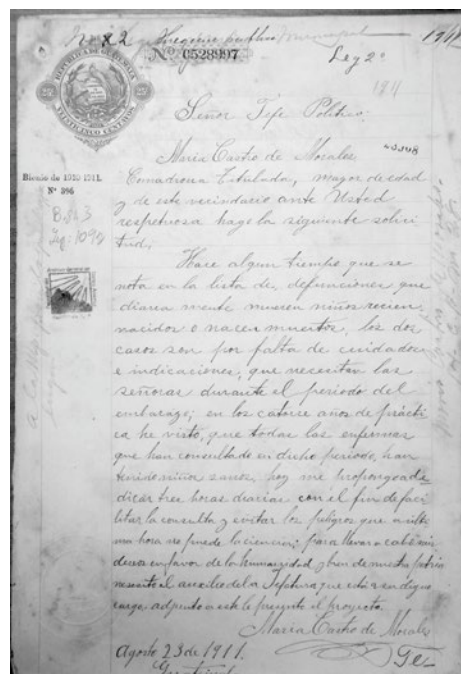 Nº 0528997
Leg 2º
1911
REPUBLICA DE GUATEMALA
25
25
VEINTICINCO CENTAVOS
Señor Jefe Politico:
Maria Castro de Morales
Bienio de 1910 1911.
Comadrona Titulada, mayor de edad
Nº 396
y de este vecindario ante Usted
respetuosa hago la siguiente solici
tud,
Hace algun tiempo que se
nota en la lista de, defunciones, que
diaria mente mueren niños recien
nacidos o nacen muertos, los dos
casos son por falta de cuidados
e indicaciones, que necesitan las
señoras durante el periodo del
embarazo; en los catorse años de prácti
ca he visto, que todas las enfermas
que han consultado en dicho periodo, han
tenido niños sanos, hoy me propongo de
dicar tres horas diarias con el fin de faci
litar la consulta y evitar los peligros que a ulti
ma hora no puede la ciencia; para llevar a cabo mis
deceos en favor de la humanidad y bien de nuestra patria
necesito el auxilio de la Jefatura que está a su digno
cargo, adjunto a este le presento el proyecto.
Maria Castro de Morales
Agosto 23 de 1911.